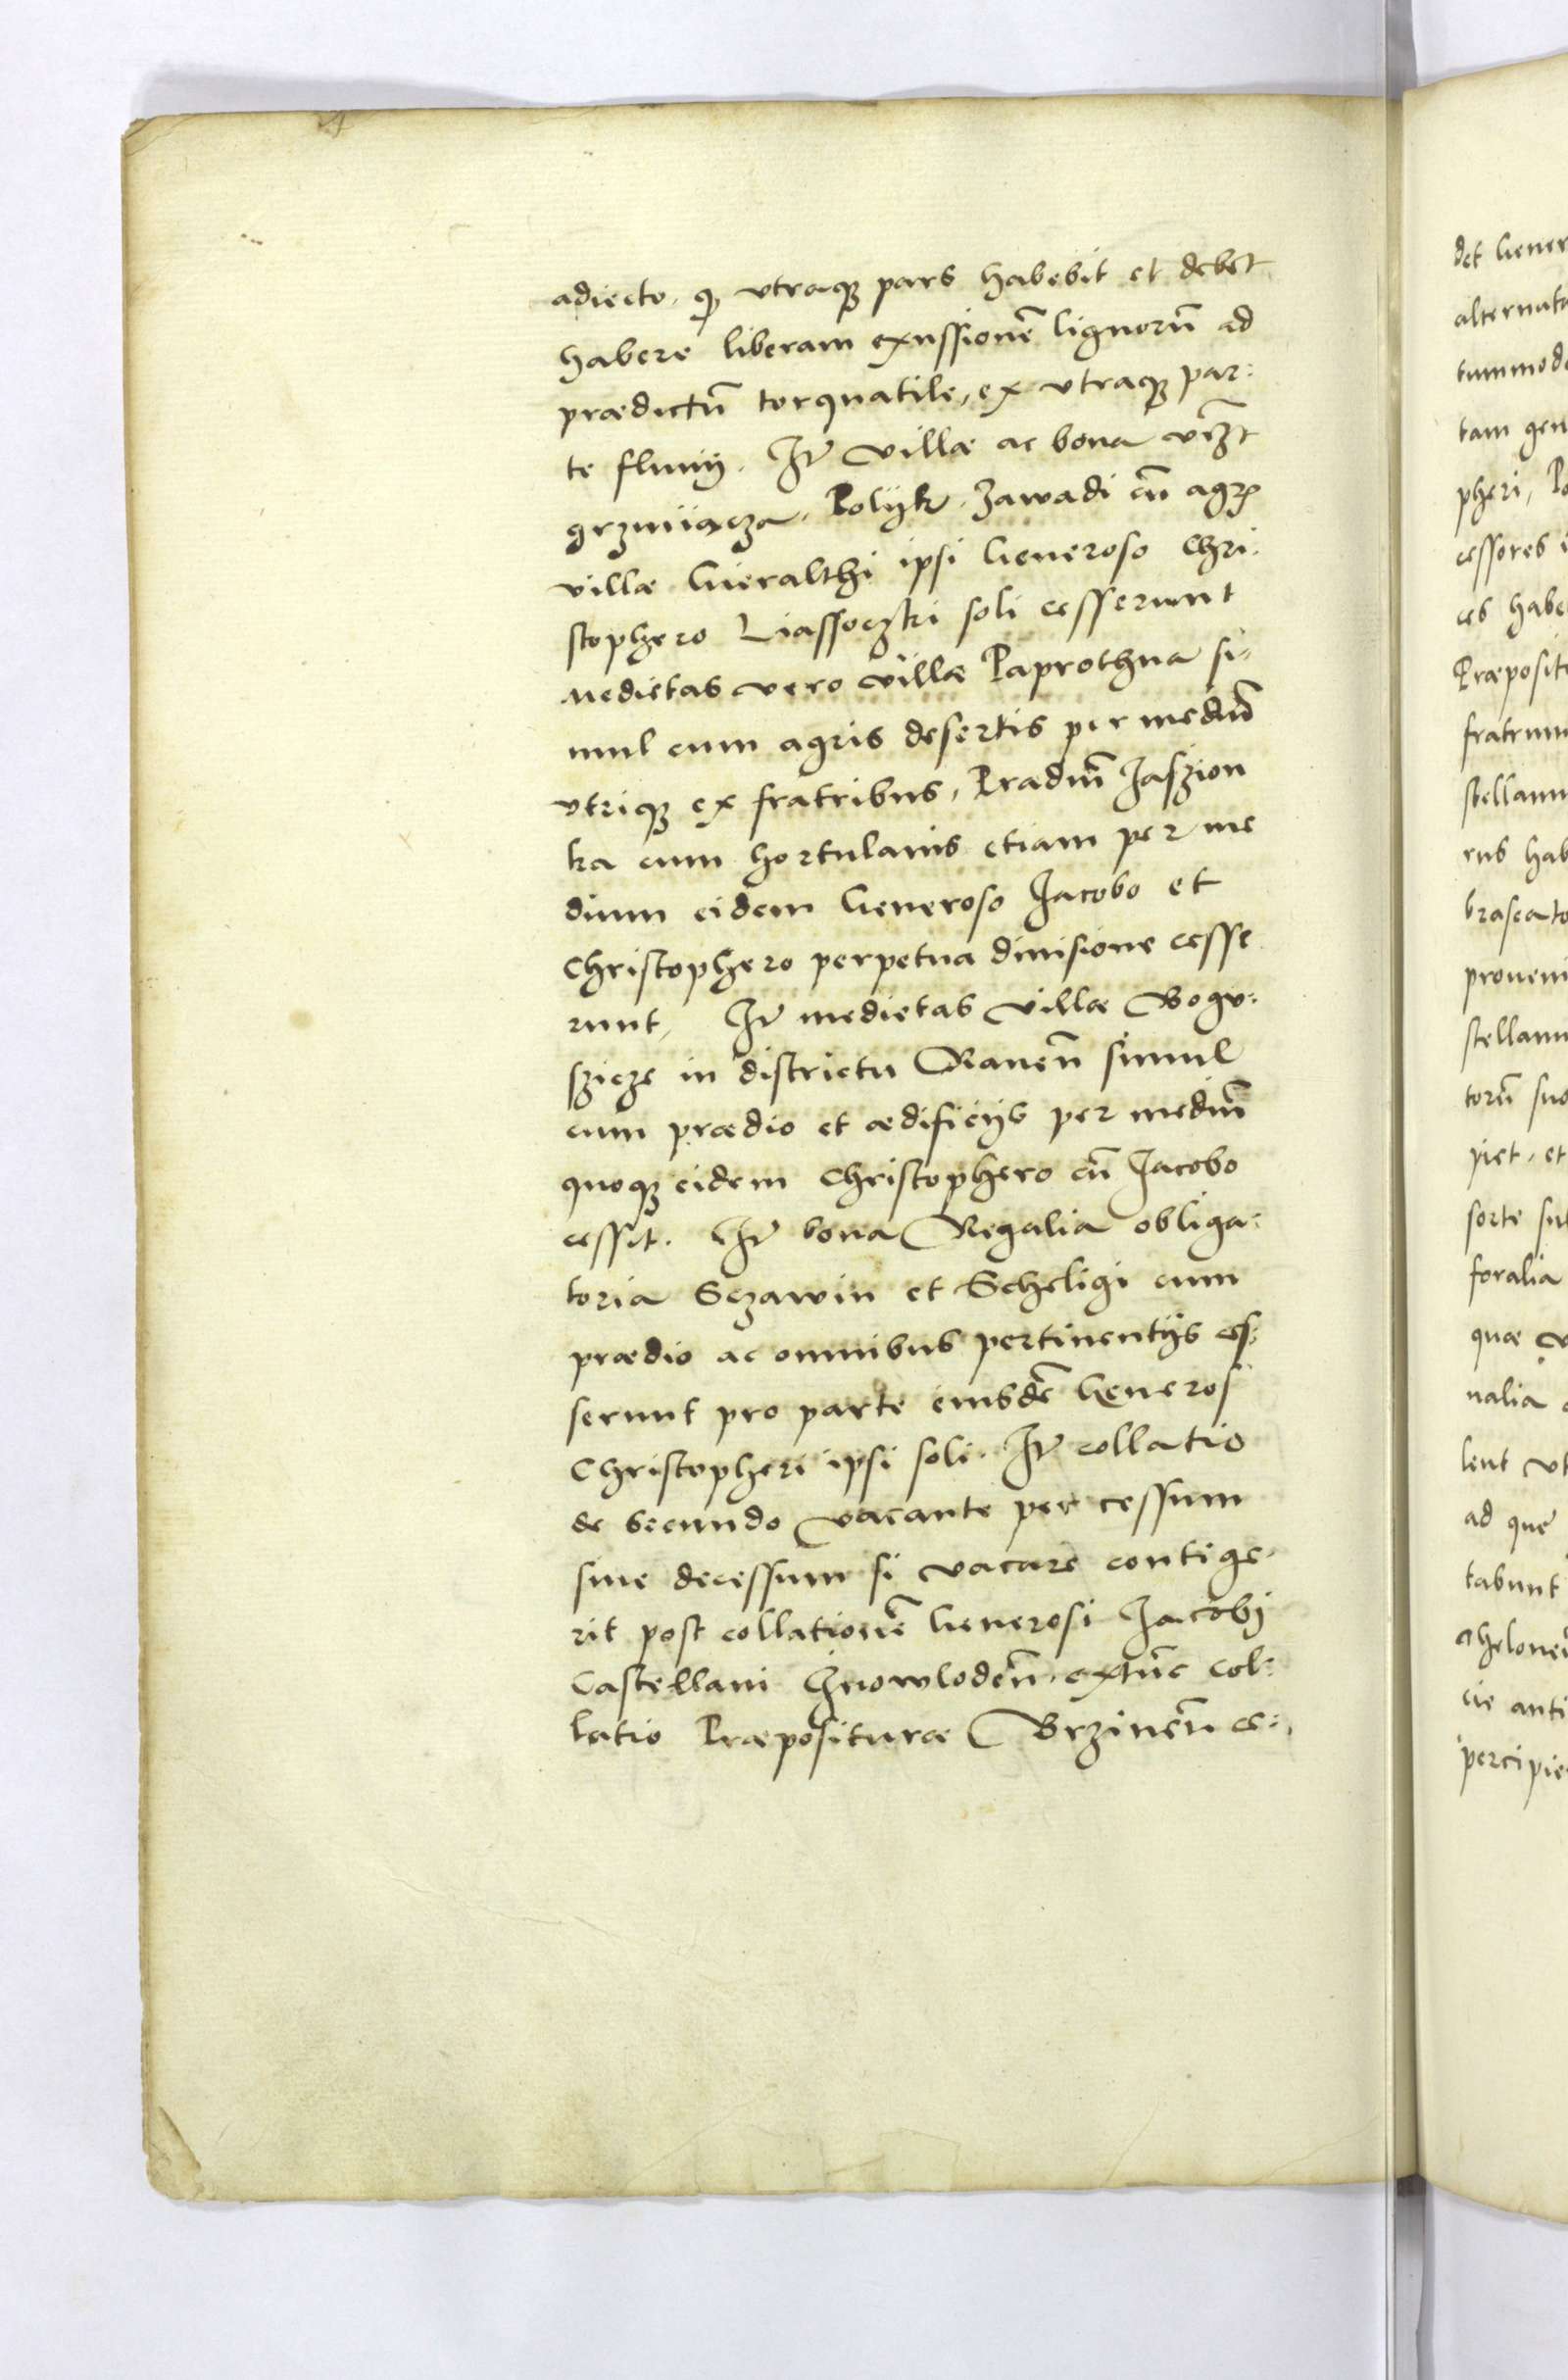 adiecto, qͅ vtraqꝫ pars habebit et debet
habere liberam exussionē lignorū ad
prædictū torquatile, ex vtraqꝫ par:
te fluuij. Itē villæ ac bona vcꝫt
grzmiacza, Polijk, Zawadi cū agris
villæ Gieralthi ipsi Generoso Chri:
stophero Liassoczki soli cesserunt
Medietas vero villæ Paprothna si=
mul cum agris desertis per mediū
vtriqꝫ ex fratribus, Prædiū Jaszion
ka cum hortulanis etiam per me
dium eidem Generoso Jacobo et
Christophero perpetua diuisione cesse
runt, Itē medietas villæ Bogu:
szicze in districtu Rauen̄ simul
cum prædio et ædificijs per mediū
quoqꝫ eidem Christophero cū Jacobo
cessit. Itē bona Regalia obliga:
toria Sczawin et Scheligi cum
prædio ac omnibus pertinentijs ces:
serunt pro parte eiusdē Generosi
Christopheri ipsi soli. Itē collatio
de secundo vacante per cessum
siue decessum si vacare contige
rit post collationē Generosi Jacobi
Castellani Jnowlodēn. extūc col:
latio Præposituræ Brzinēn ce:
det Gener
alternata
tummodo
tam gen
pheri, Po
cessores
ces habe
Præposit
fratrum
stellanu
rus hab
braseato
proueni
stellanu
torū suo
piet, et
sorte su
foralia
quæ v
nalia
lent vt
ad quē
tabunt
cie anti
percipie